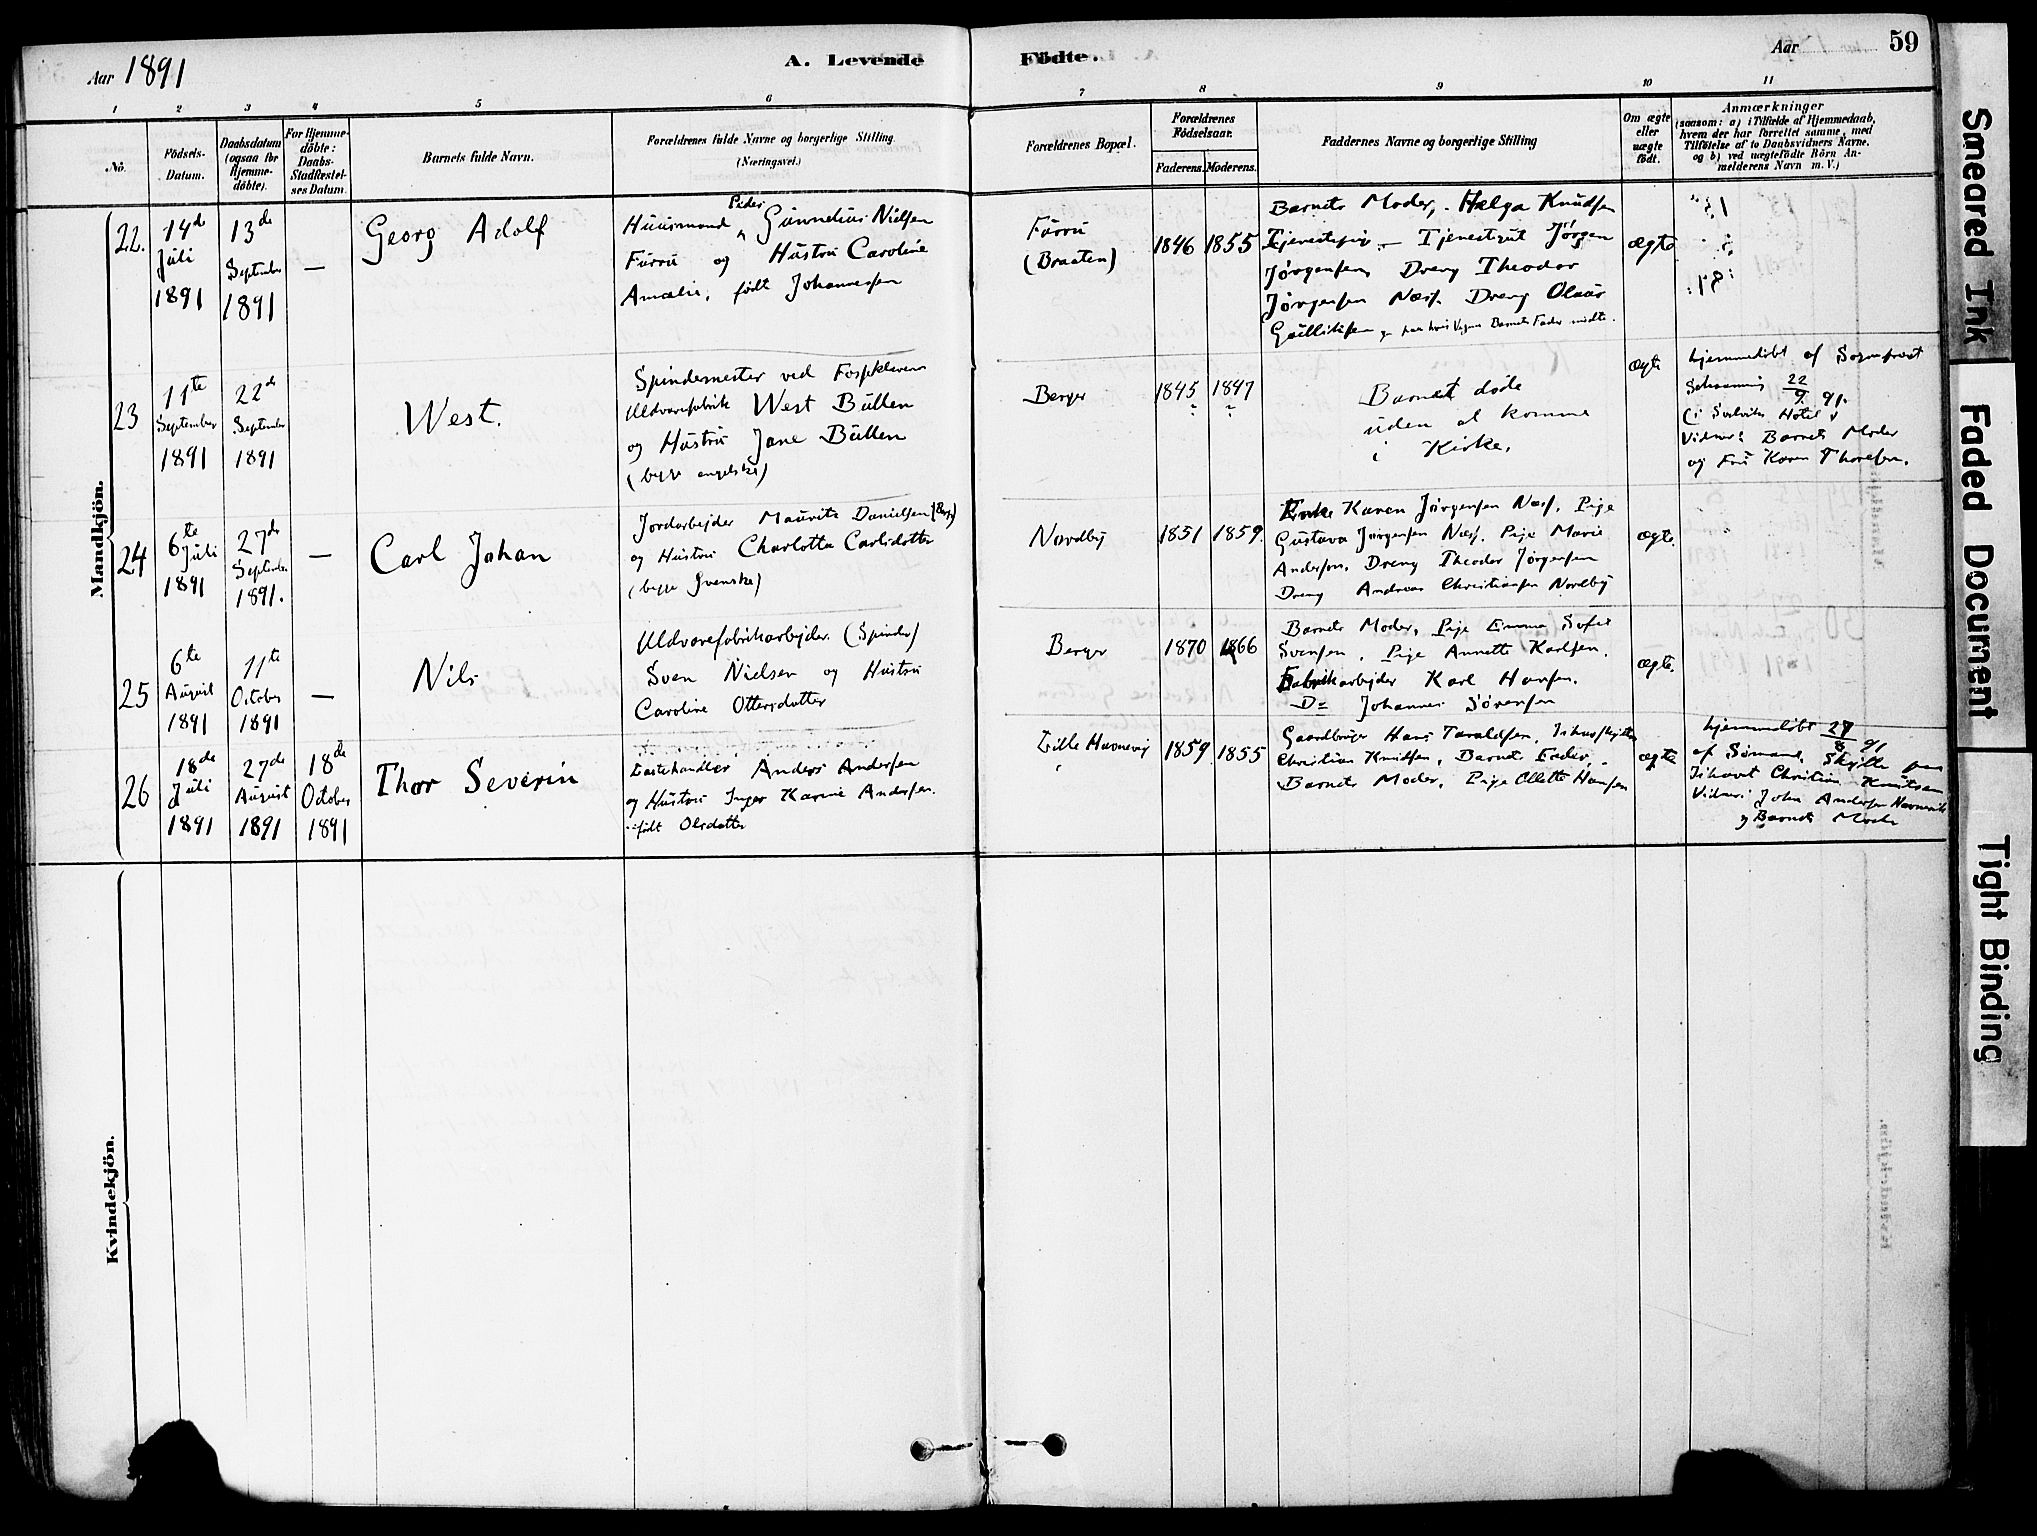 Aar 1891
A. Levende Födte.
Aar
59
1 2 3 4 5 6 7 8 9 10 11
No.
Födsels-
Datum.
Daabsdatum
(ogsaa for
Hjemme-
döbte).
For Hjemme-
döbte:
Daabs-
Stadfæstel-
ses Datum.
Barnets fulde Navn.
Forældrenes fulde Navne og borgerlige Stilling
(Næringsvei.)
Forældrenes Bopæl.
Forældrenes
Födselsaar.
Faderens. Moderens.
Faddernes Navne og borgerlige Stilling
Om ægte
eller
uægte
födt.
Anmærkninger
(saasom: a) i Tilfælde af Hjemmedaab,
hvem der har forrettet samme, med
Tilföielse af to Daabsvidners Navne.
og b) ved uægtefödte Börn An-
melderens Navn m. V.)
Mandkjön.
22.
14de
Juli
1891
13de
September
1891
—
Georg Adolf
Peder
Huusmand Gunnelius Nielsen
Furru og Hustru Caroline
Amalie, født Johannesen
Furru
(Braaten)
1846 1855
Barnets Moder, Helga Knudsen
Tjenestepig — Tjenestgut Jørgen
Jørgensen, Dreng Theodor
Jørgensen Næss. Dreng Olaus
Gullichsen Barnets Fader mødte.
ægte
23
11te
September
1891
22de
September
1891
West.
Spindemester ved Fossekleven
Uldvarefabrik West Bullen
og Hustru Jane Bullen
(begge engelske)
Berger
1845 1847
? ?
Barnet døde
uden at komme
i Kirke.
ægte
hjemmedøbt af Sogneprest
22/9 91.
(i Svelviks Hotel
Vidner: Barnets Moder
og Fru Karen Thoresen.
24
6te
Juli
1891
27de
September
1891.
—
Carl Johan
Jordarbejder Mauritz Danielsen
og Hustru Charlotta Carlsdotter
(begge Svenske)
Nordby
1851 1859.
Enke Karen Jørgensen Næss, Pige
Gustava Jørgensen Næss. Pige Marie
Andersen, Dreng Theodor Jørgensen
Dreng Andreas Christiansen Nordby
ægte.
25
6te
August
1891
11te
October
1891
—
Nils
Uldvarefabrikarbejder (Spinder)
Sven Nielsen og Hustru
Caroline Ottersdatter
Berger
1870 1866
Barnets Moder, Pige Emma Sofie
Svensen, Pige Annette Karlsen,
Fabrikarbejder Karl Hansen.
Do Johannes Sørensen
ægte.
26
18de
Juli
1891
27de
August
1891
18de
October
1891
Thor Severin
Lastehandler Anders Andersen
og Hustru Inger Karine Andersen.
født Olsdatter
Lille Havnevig
1859 1855
Gaardbruger Hans Taraldsen, Ishavsskytter
Christian Knudsen, Barnets Fader,
Barnets Moder, Pige Olette Hansen
ægte
hjemmedøbt 27/8 91
af Sømand, Skytte paa
Ishavet Christian Knutsen
Vidner: John Andersen Havnevik
og Barnets Moder
Kvindekjön.
Smeared Ink
Faded Document
Tight Binding